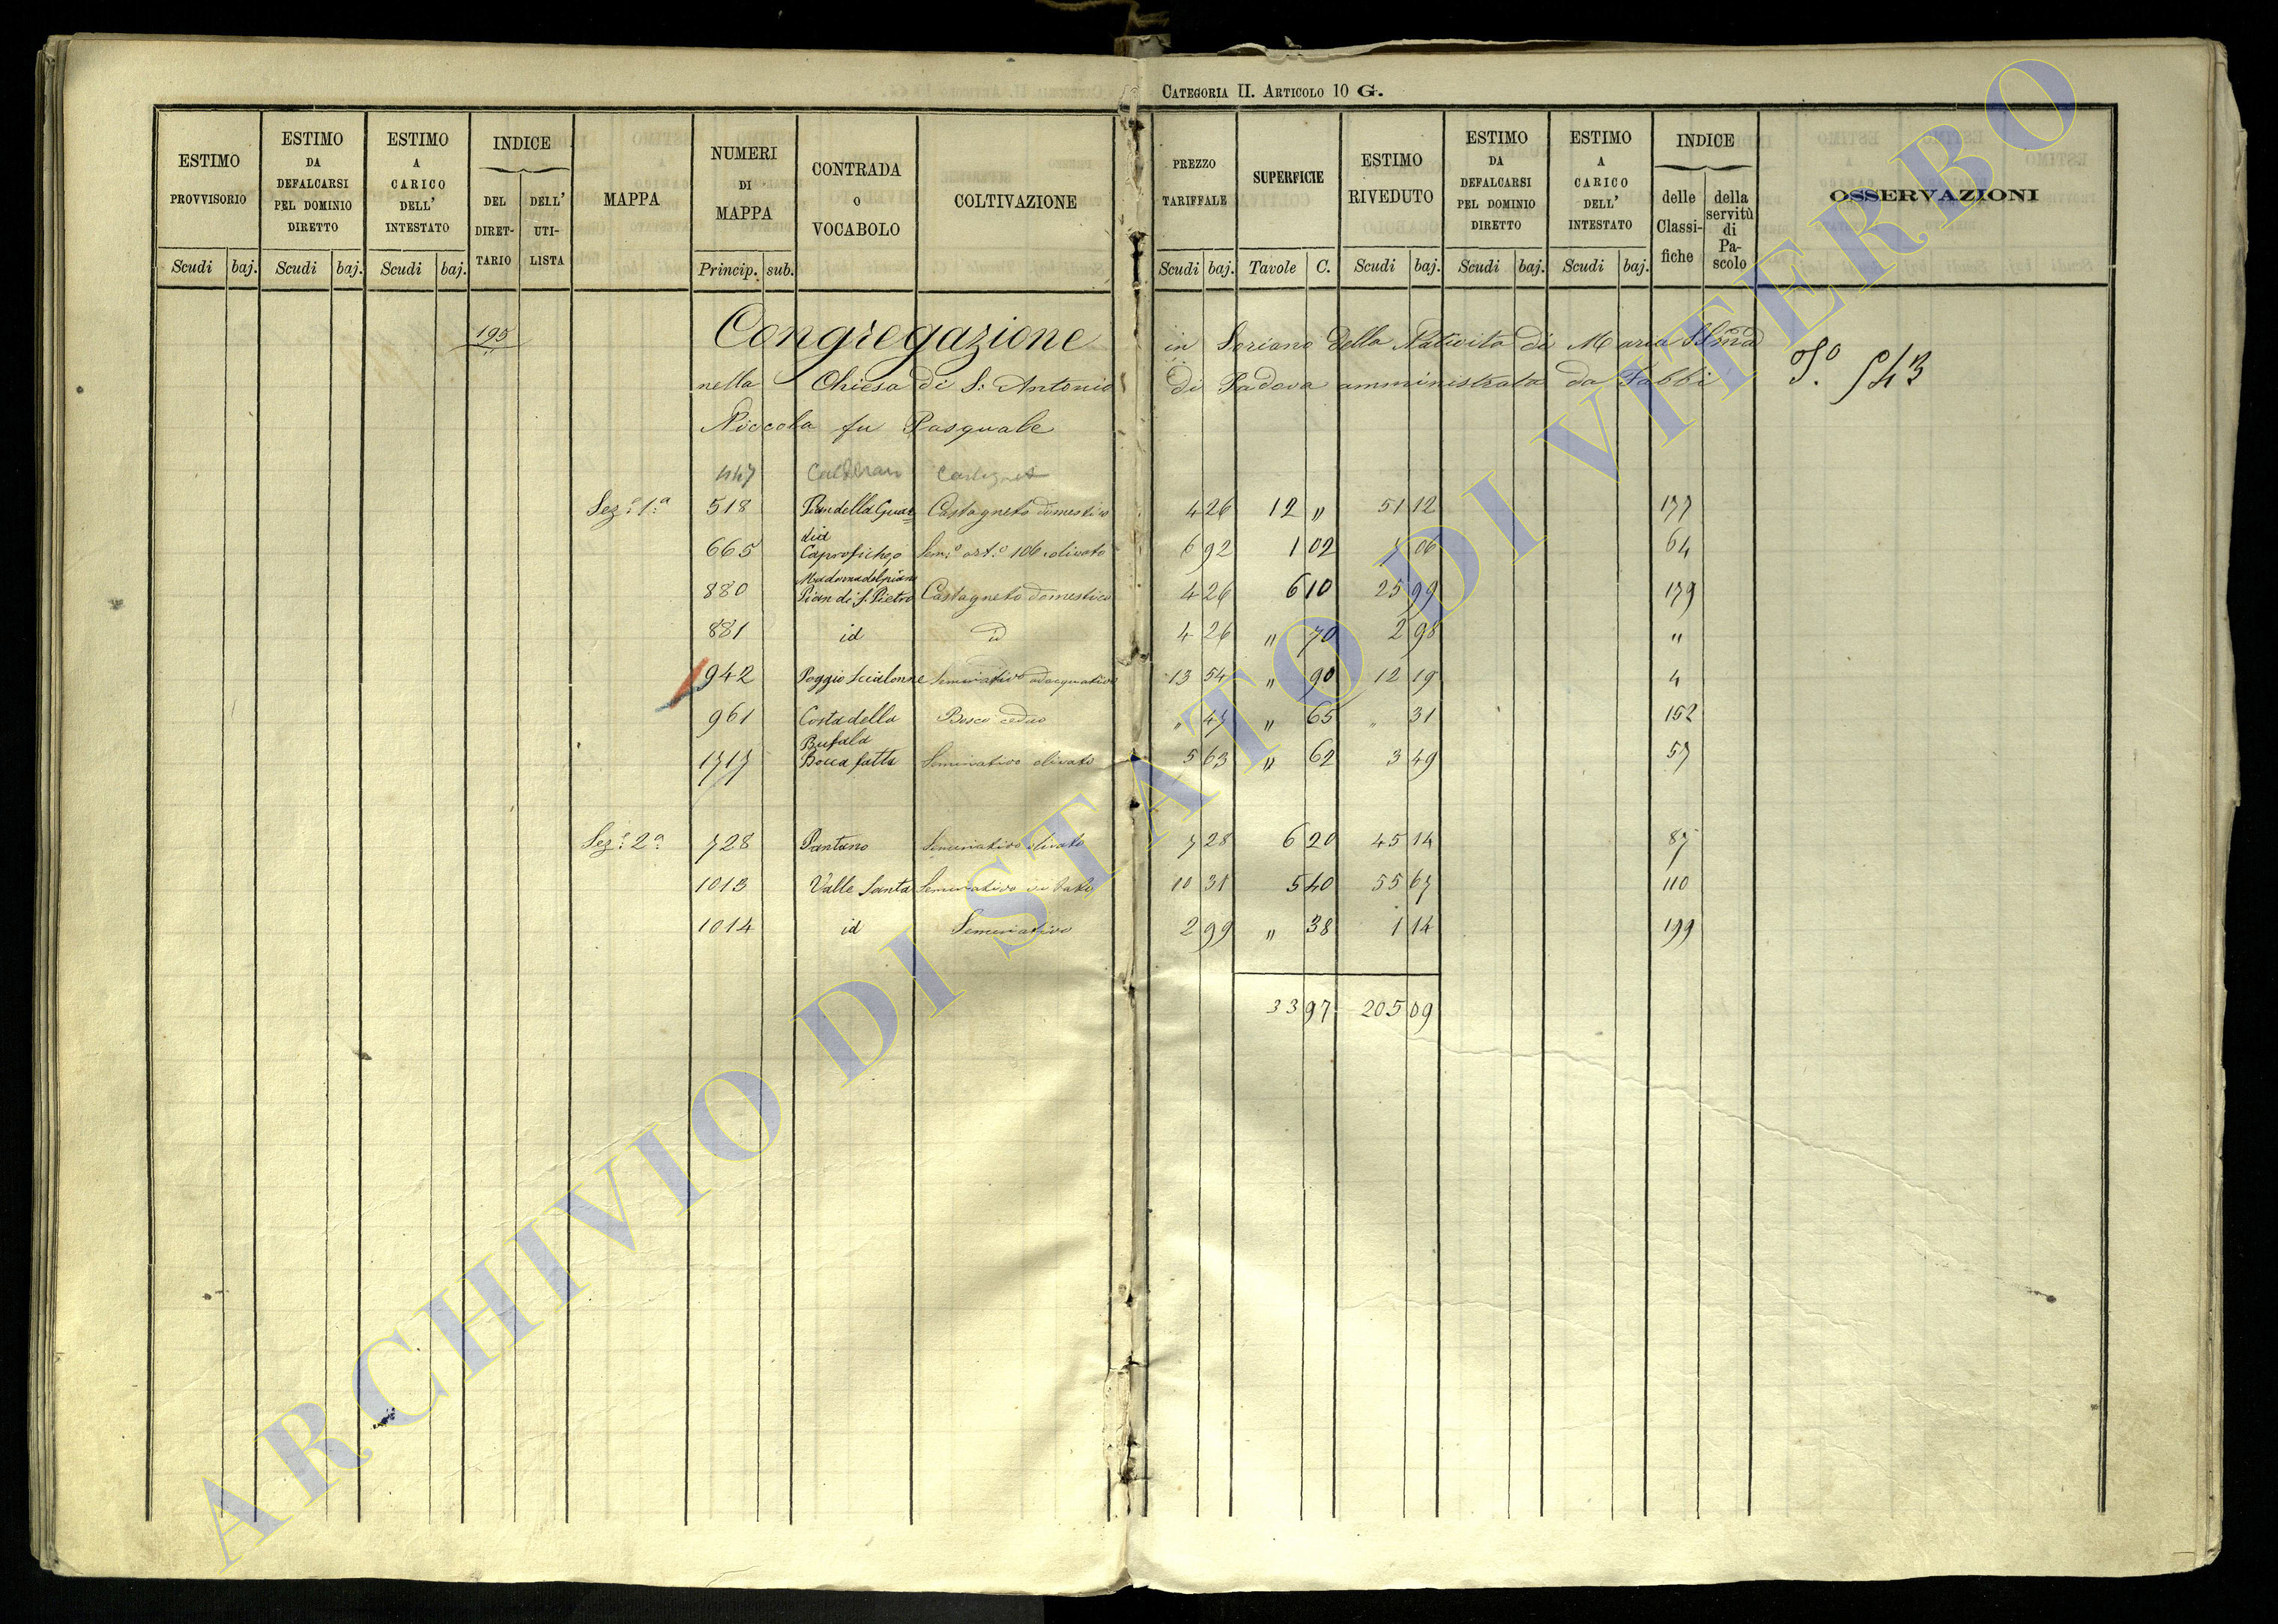 CATEGORIA II. ARTICOLO 10 G.
ESTIMO PROVVISORIO Scudi baj.
ESTIMO DA DEFALCARSI PEL DOMINIO DIRETTO Scudi baj.
ESTIMO A CARICO DELL' INTESTATO Scudi baj.
INDICE DEL DIRET-TARIO DELL' UTI-LISTA
MAPPA
NUMERI DI MAPPA Princip. sub.
CONTRADA o VOCABOLO
COLTIVAZIONE
PREZZO TARIFFALE Scudi baj.
SUPERFICIE Tavole C.
ESTIMO RIVEDUTO Scudi baj.
ESTIMO DA DEFALCARSI PEL DOMINIO DIRETTO Scudi baj.
ESTIMO A CARICO DELL' INTESTATO Scudi baj.
INDICE delle Classi-fiche della servitù di Pa-scolo
OSSERVAZIONI
195 Congregazione in Soriano della Natività di Maria SSma
nella Chiesa di S: Antonio di Padova amministrata da Fabbi
Niccola fu Pasquale
447
Sez: 1a 518 Pian della Guar=dia Castagneto domestico 4 26 12 " 51 12 177
665 Sem:o olivato 6 92 1 02 06 64
880 Madonna del piano Pian di S. Pietro Castagneto domestico 4 26 6 10 25 99 179
881 id id 4 26 " 70 2 98 "
942 Poggio Scialonne Seminativo adacquativo 13 54 " 90 12 19 4
961 Costa della Bufala Bosco ceduo " 47 " 65 " 31 152
1717 Bocca fatta Seminativo olivato 5 63 " 62 3 49 57
Sez: 2a 728 Pantano Seminativo olivato 7 28 6 20 45 14 87
1013 Valle Santa Seminativo vitato 10 31 5 40 55 67 110
1014 id Seminativo 2 99 " 38 1 14 199
33 97 205 09
ARCHIVIO DI STATO DI VITERBO